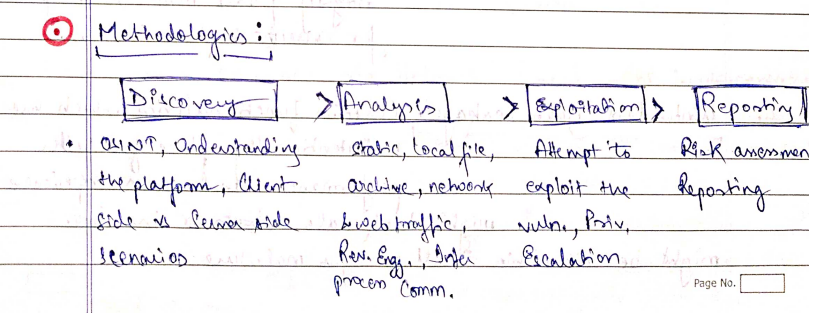 Methodologies:
Discovery > Analysis > Exploitation > Reporting
OSINT, Understanding
the platform, Client
side vs Server side
scenarios
Static, local file,
archive, network
& web traffic,
Rev. Engg., Inter
process Comm.
Attempt to
exploit the
vuln., Priv.
Escalation
Risk assessmen
Reporting
Page No.